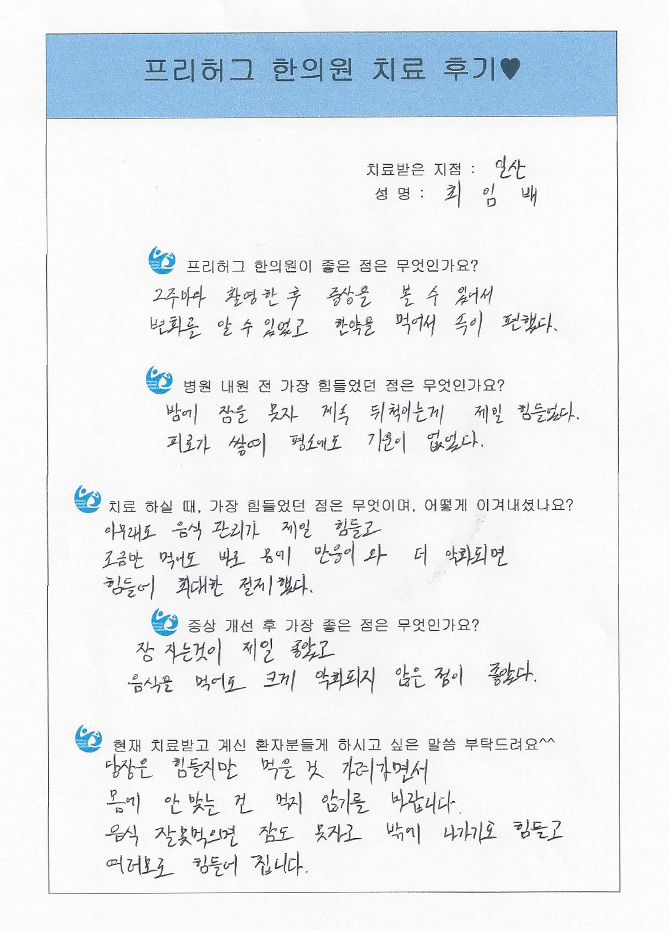 프리허그 한의원 치료 후기♥
치료받은 지점 : 일산
성 명 : 최 임 배
프리허그 한의원이 좋은 점은 무엇인가요?
2주마다 촬영한 후 증상을 볼 수 있어서
변화를 알 수 있었고 한약을 먹어서 속이 편했다.
병원 내원 전 가장 힘들었던 점은 무엇인가요?
밤에 잠을 못자 계속 뒤척이는게 제일 힘들었다.
피로가 쌓여 평소에도 기운이 없었다.
치료 하실 때, 가장 힘들었던 점은 무엇이며, 어떻게 이겨내셨나요?
아무래도 음식 관리가 제일 힘들고
조금만 먹어도 바로 몸에 반응이 와 더 악화되면
힘들어 최대한 절제했다.
증상 개선 후 가장 좋은 점은 무엇인가요?
잠 자는것이 제일 좋았고
음식을 먹어도 크게 악화되지 않은 점이 좋았다.
현재 치료받고 계신 환자분들게 하시고 싶은 말씀 부탁드려요^^
당장은 힘들지만 먹을 것 가려가면서
몸에 안 맞는 건 먹지 않기를 바랍니다.
음식 잘못먹으면 잠도 못자고 밖에 나가기도 힘들고
여러모로 힘들어 집니다.